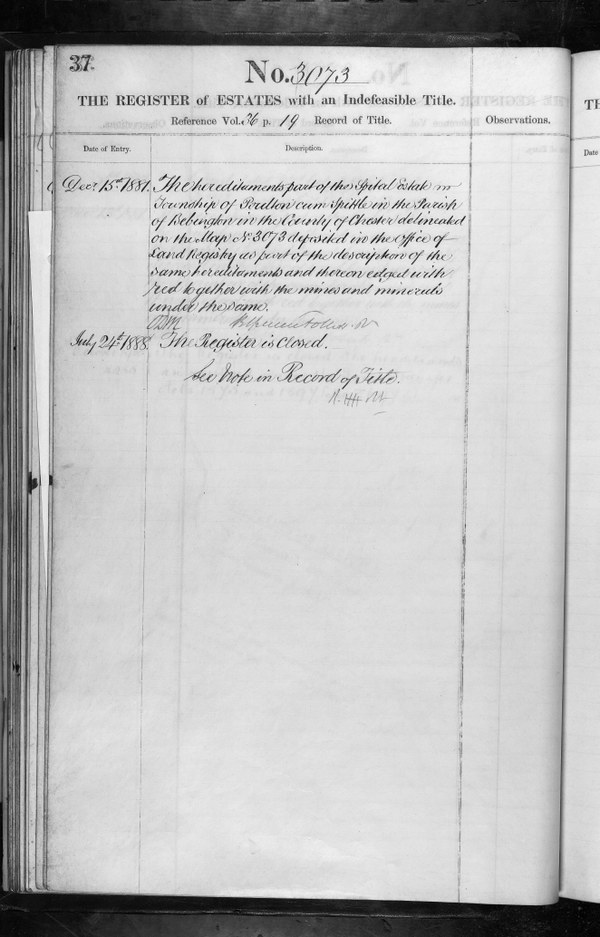 37.
No. 3073
THE REGISTER of ESTATES with an Indefeasible Title.
Reference Vol. 26 p. 19 Record of Title.
Observations.
Date of Entry.
Description.
Decr 15th 1881. The hereditaments part of the Spital Estate in
Township of Poulton cum Spittle in the Parish
of Bebington in the County of Chester delineated
on the Map No 3073 deposited in the Office of
Land Registry as part of the description of the
same hereditaments and thereon edged with
red together with the mines and minerals
under the same.
July 24th 1888. The Register is Closed.
See Note in Record of Title.
TH
Date